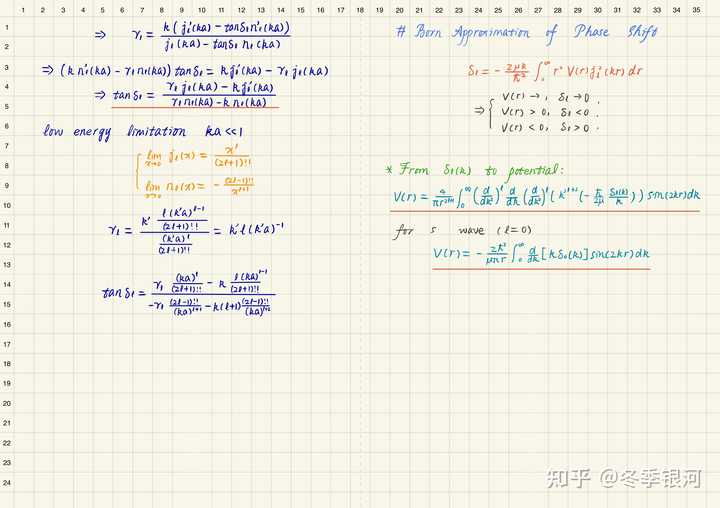 1 2 3 4 5 6 7 8 9 10 11 12 13 14 15 16 17 18 19 20 21 22 23 24 25 26 27 28 29 30 31 32 33 34 35
1
2
3
4
5
6
7
8
9
10
11
12
13
14
15
16
17
18
19
20
21
22
23
24
⇒ γl = k(jl'(ka) - tanδl nl'(ka)) / jl(ka) - tanδl nl(ka)
⇒ (k nl'(ka) - γl nl(ka)) tanδl = k jl'(ka) - γl jl(ka)
⇒ tanδl = γl jl(ka) - k jl'(ka) / γl nl(ka) - k nl'(ka)
low energy limitation ka << 1
lim x→0 jl(x) = x^l / (2l+1)!!
lim x→0 nl(x) = - (2l-1)!! / x^(l+1)
γl = k' (l(k'a)^(l-1) / (2l+1)!!) / ((k'a)^l / (2l+1)!!) = k' l (k'a)^-1
tanδl = (γl (ka)^l / (2l+1)!! - k l(ka)^(l-1) / (2l+1)!!) / (-γl (2l-1)!! / (ka)^(l+1) - k(l+1) (2l-1)!! / (ka)^(l+2))
# Born Approximation of Phase Shift
δl = - 2μk/ħ² ∫0^∞ r² V(r) jl²(kr) dr
⇒ { V(r) → , δl → 0 .
V(r) > 0, δl < 0 .
V(r) < 0, δl > 0 .
* From δl(k) to potential:
for s wave (l=0)
V(r) = - 2ħ²/μπr ∫0^∞ d/dk [k δ0(k)] sin(2kr) dk
知乎 @冬季银河